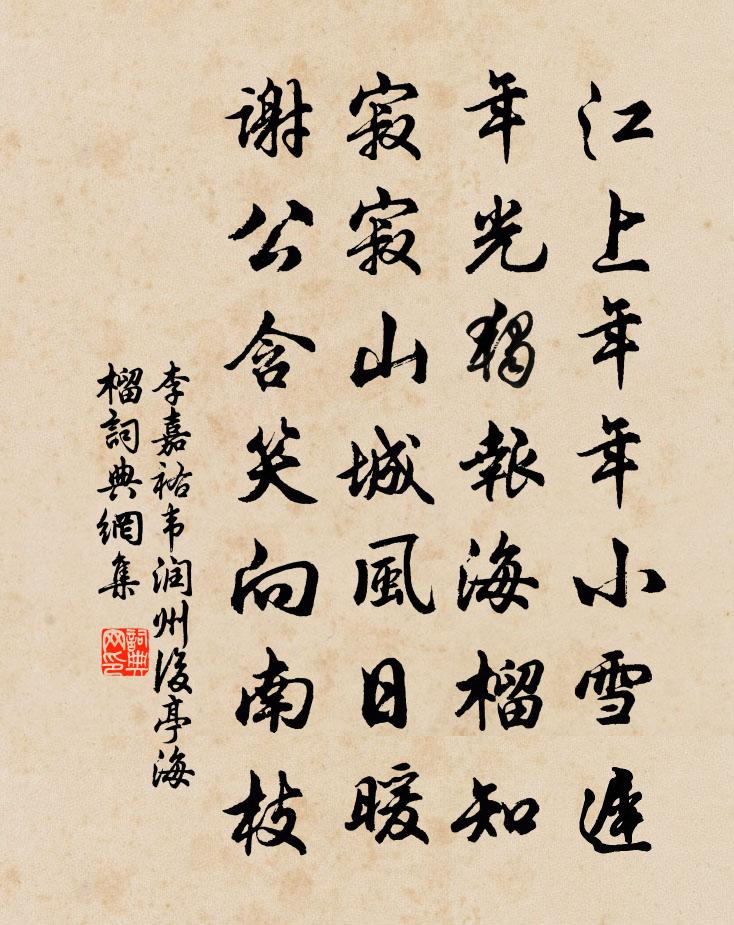 江上年年小雪遲
年光獨報海榴知
寂寂山城風日暖
謝公含笑向南枝
李嘉祐韦润州後亭海
榴詞典網集
詞典
网印